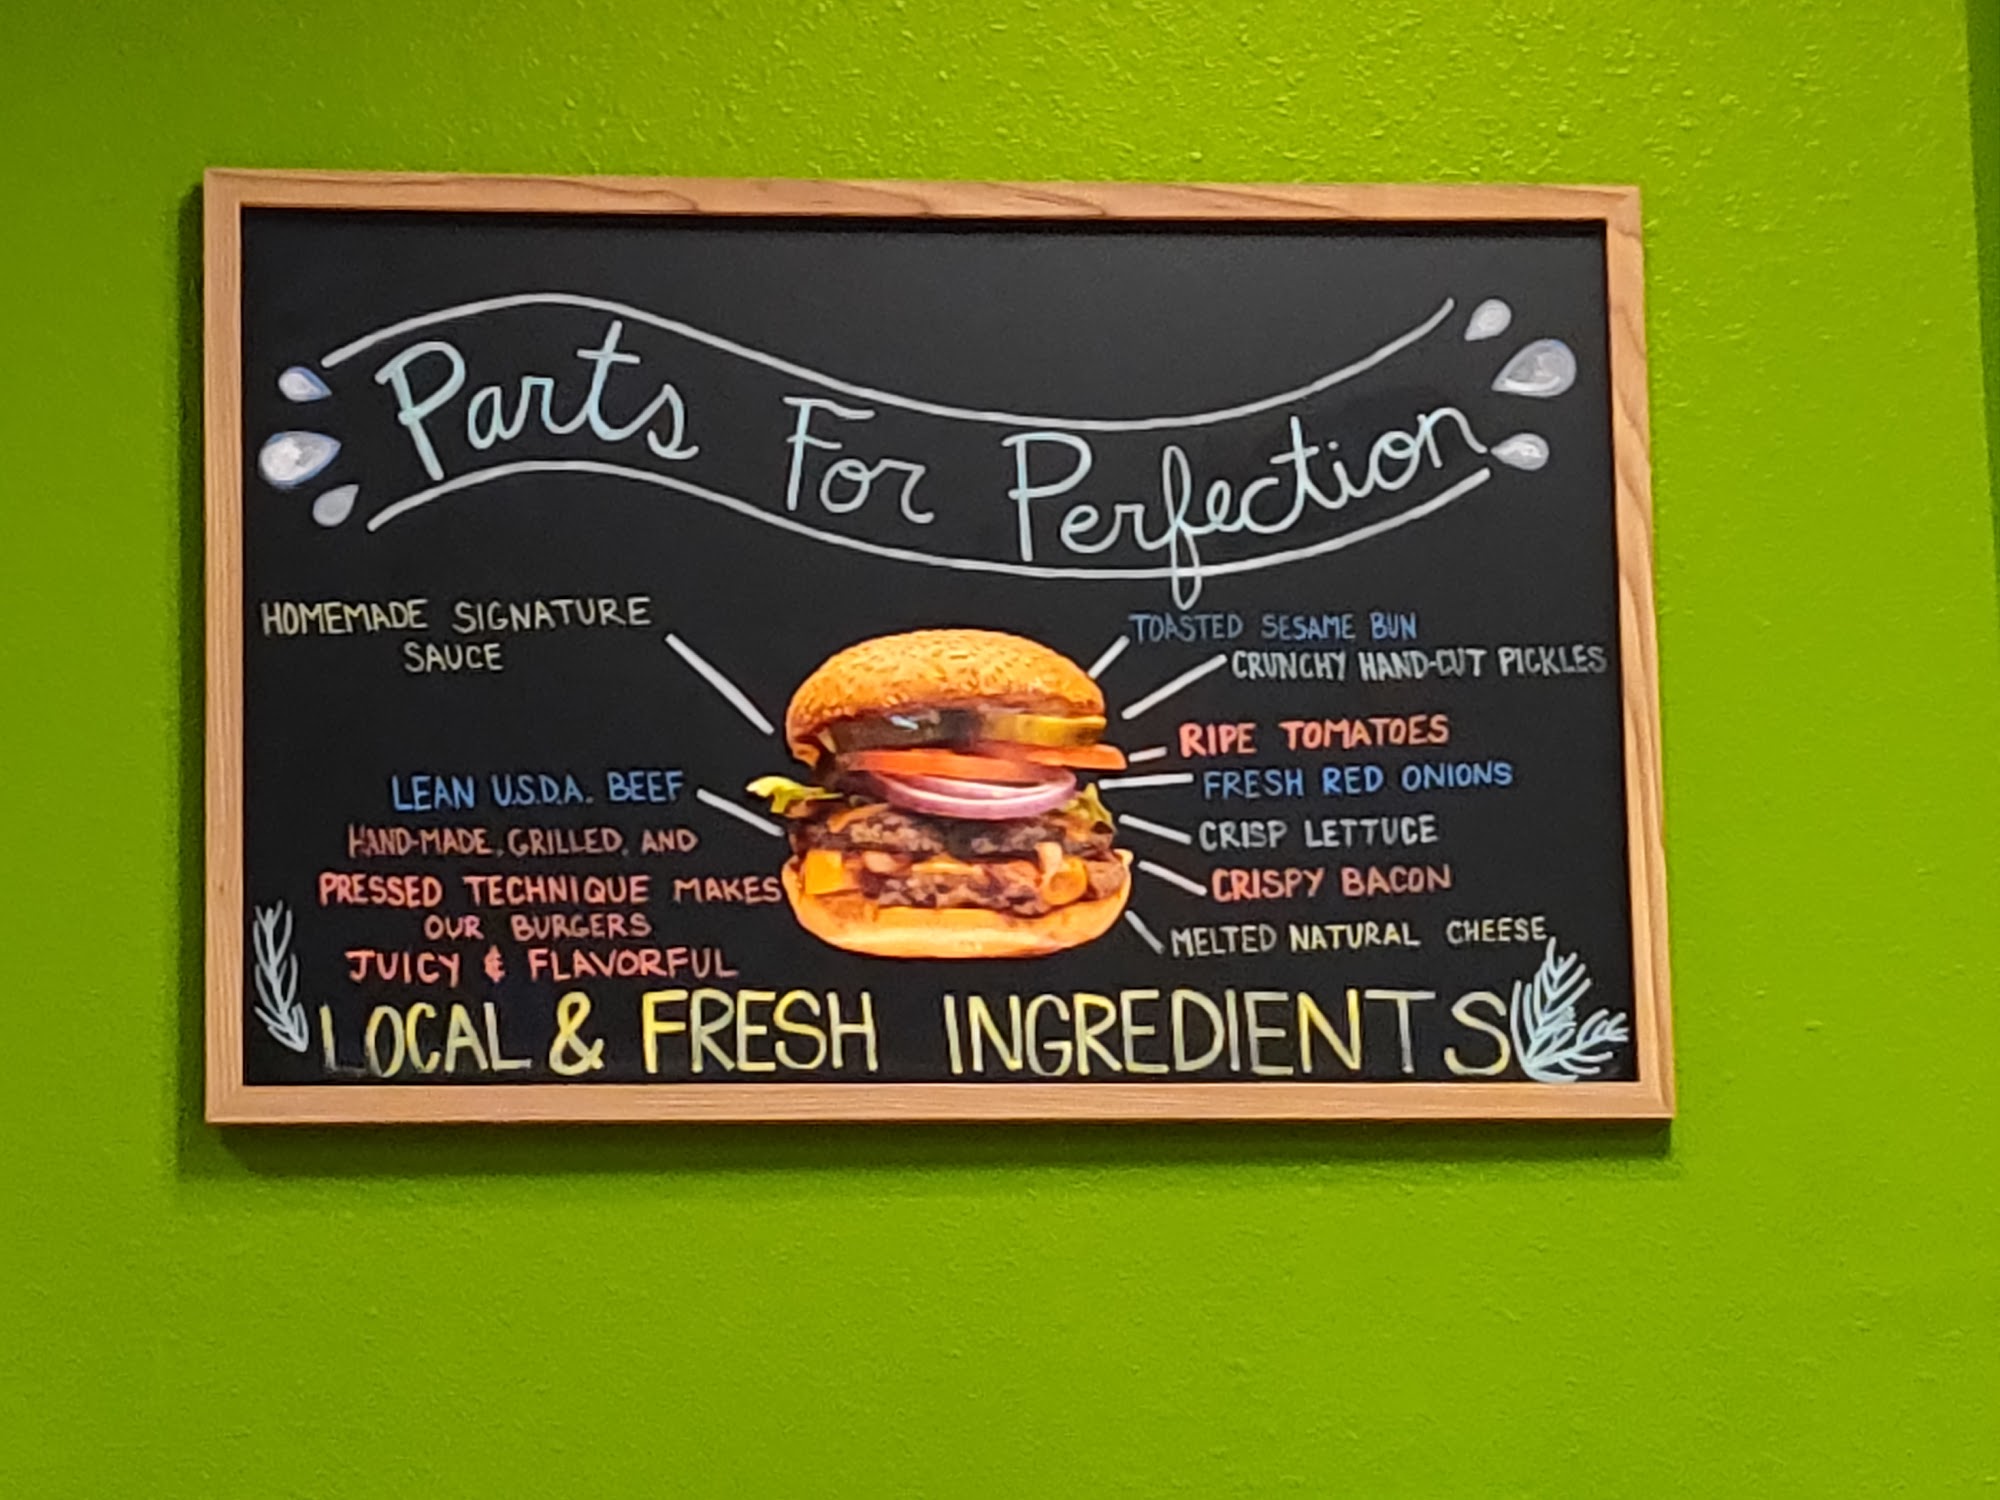 Parts For Perfection
HOMEMADE SIGNATURE
SAUCE
LEAN U.S.D.A. BEEF
HAND-MADE, GRILLED, AND
PRESSED TECHNIQUE MAKES
OUR BURGERS
JUICY & FLAVORFUL
TOASTED SESAME BUN
CRUNCHY HAND-CUT PICKLES
RIPE TOMATOES
FRESH RED ONIONS
CRISP LETTUCE
CRISPY BACON
MELTED NATURAL CHEESE
LOCAL & FRESH INGREDIENTS